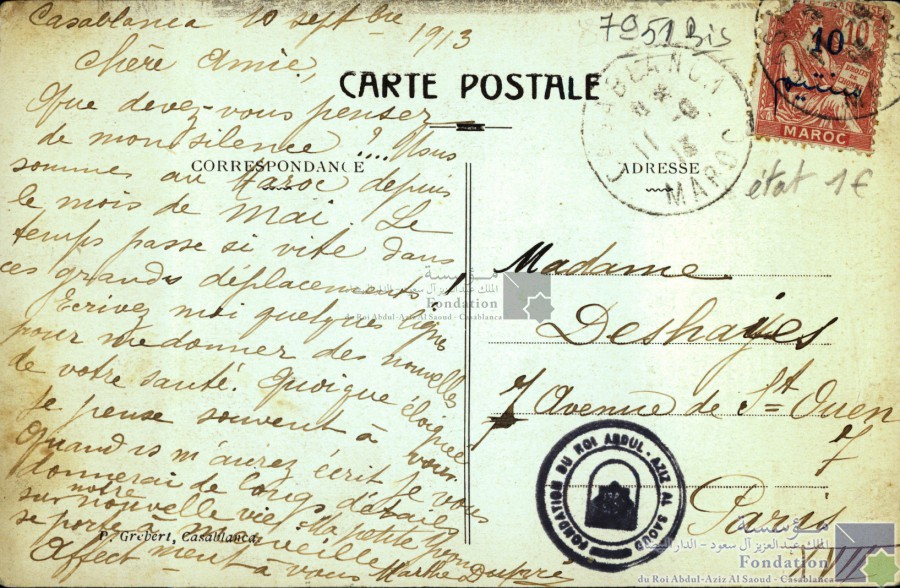 Casablanca 10 septbre 1913
Chère Amie,
Que devez-vous penser
de mon silence ?.... Nous
sommes au Maroc depuis
le mois de Mai. Le
temps passe si vite dans
ces grands déplacements !
Ecrivez moi quelques lignes
pour me donner des nouvelles
de votre santé. Quoique éloignée
je pense souvent à vous
Quand vs m'aurez écrit je vous
donnerai de longs détails
sur notre nouvelle vie. Ma petite
se porte à merveille
Affectment à vous Marthe Dupré
P. Grébert, Casablanca
CARTE POSTALE
CORRESPONDANCE
ADRESSE
7951 Bis
CASABLANCA
11
MAROC
10
10
MAROC
état 1€
Madame
Deshayes
7 Avenue de St Ouen
7
Paris
FONDATION DU ROI ABDUL-AZIZ AL SAOUD
مؤسسة
الملك عبد العزيز آل سعود - الدار البيضاء
Fondation
du Roi Abdul-Aziz Al Saoud - Casablanca
مؤسسة
الملك عبد العزيز آل سعود - الدار البيضاء
Fondation
du Roi Abdul-Aziz Al Saoud - Casablanca